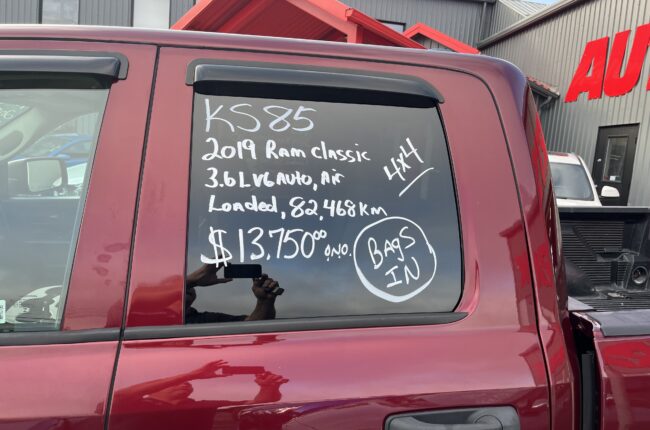 KS85
2019 Ram Classic
3.6L V6 Auto, Air
Loaded, 82,468 KM
4x4
$13,750⁰⁰ O.N.O.
BAGS
IN
AU